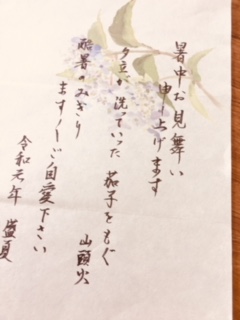 暑中お見舞い
申上げます
夕立が洗っていった茄子をもぐ
山頭火
酷暑のみぎり
ますますご自愛下さい
令和元年 盛夏